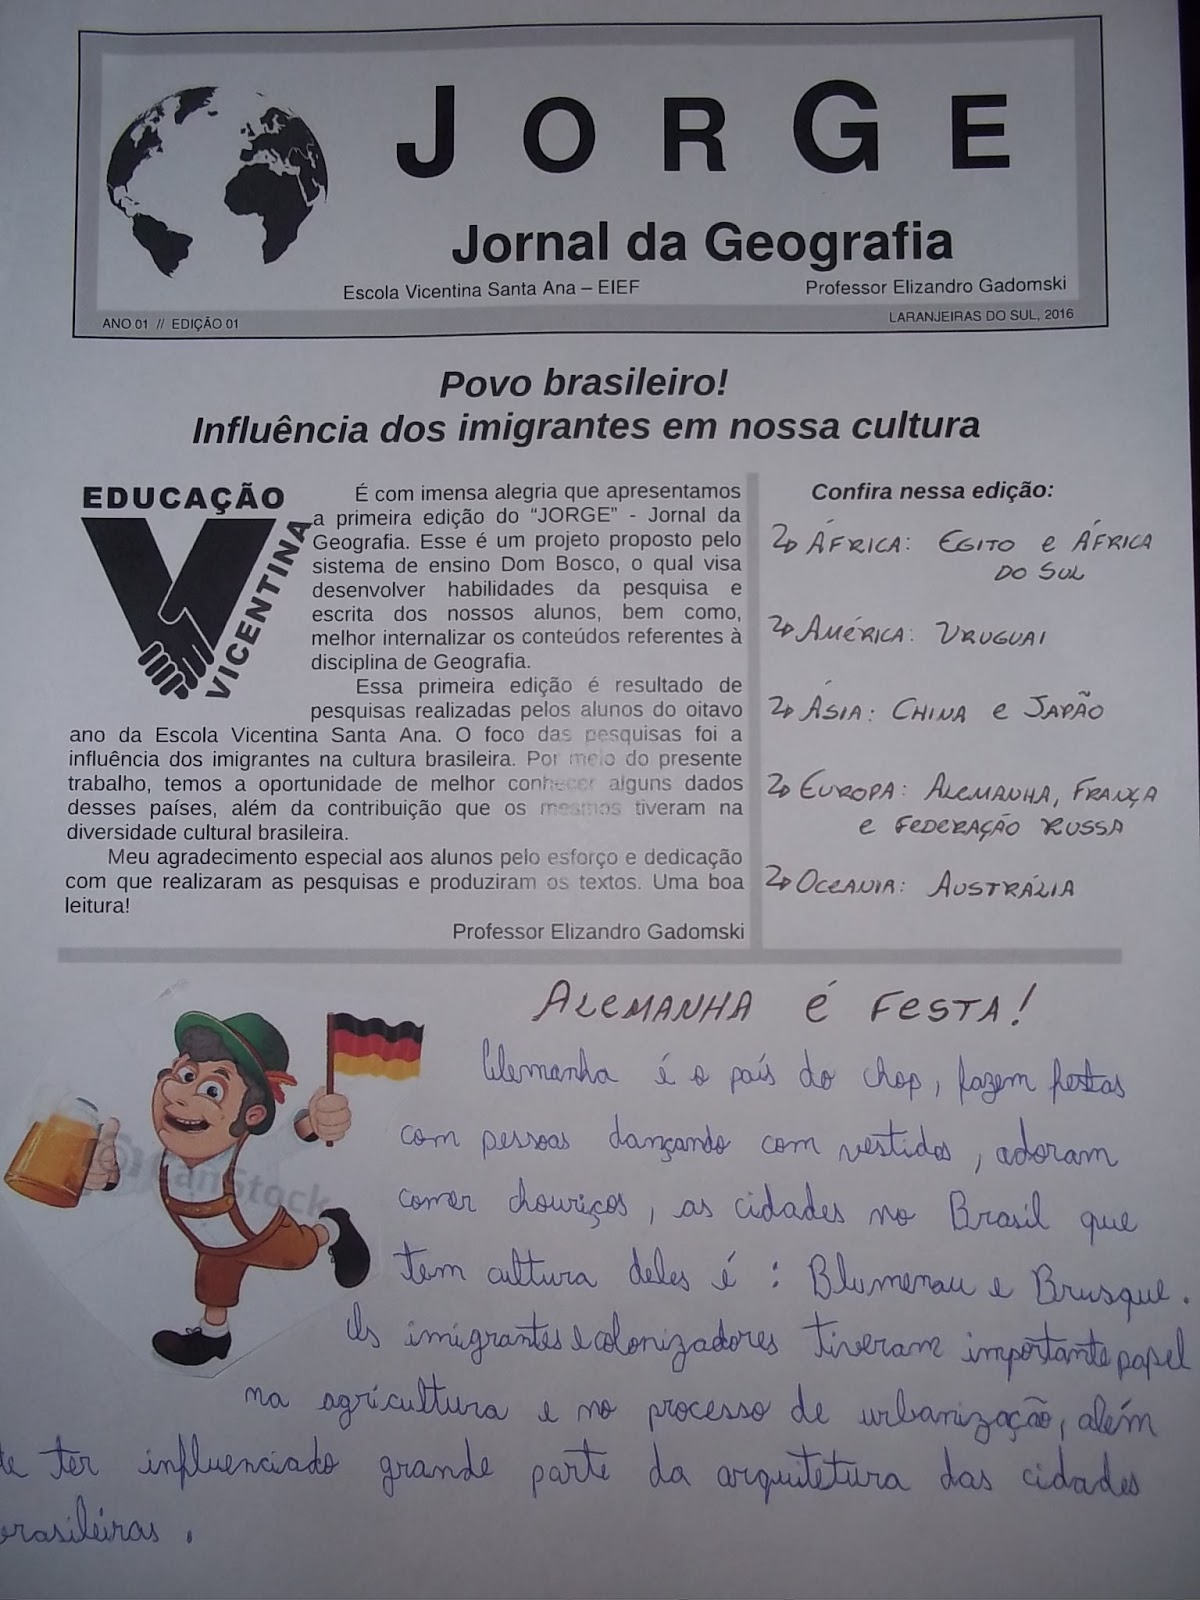 JORGE
Jornal da Geografia
Escola Vicentina Santa Ana – EIEF
Professor Elizandro Gadomski
ANO 01 // EDIÇÃO 01
LARANJEIRAS DO SUL, 2016
Povo brasileiro!
Influência dos imigrantes em nossa cultura
EDUCAÇÃO
VICENTINA
É com imensa alegria que apresentamos
a primeira edição do “JORGE” - Jornal da
Geografia. Esse é um projeto proposto pelo
sistema de ensino Dom Bosco, o qual visa
desenvolver habilidades da pesquisa e
escrita dos nossos alunos, bem como,
melhor internalizar os conteúdos referentes à
disciplina de Geografia.
Essa primeira edição é resultado de
pesquisas realizadas pelos alunos do oitavo
ano da Escola Vicentina Santa Ana. O foco das pesquisas foi a
influência dos imigrantes na cultura brasileira. Por meio do presente
trabalho, temos a oportunidade de melhor conhecer alguns dados
desses países, além da contribuição que os mesmos tiveram na
diversidade cultural brasileira.
Meu agradecimento especial aos alunos pelo esforço e dedicação
com que realizaram as pesquisas e produziram os textos. Uma boa
leitura!
Professor Elizandro Gadomski
Confira nessa edição:
África: Egito e África
do Sul
América: Uruguai
Ásia: China e Japão
Europa: Alemanha, França
e Federação Russa
Oceania: Austrália
Alemanha é festa!
Alemanha é o país do chop, fazem festas
com pessoas dançando com vestidos, adoram
comer chouriços, as cidades no Brasil que
tem cultura deles é: Blumenau e Brusque.
Os imigrantes e colonizadores tiveram importante papel
na agricultura e no processo de urbanização, além
de ter influenciado grande parte da arquitetura das cidades
brasileiras.
CanStock